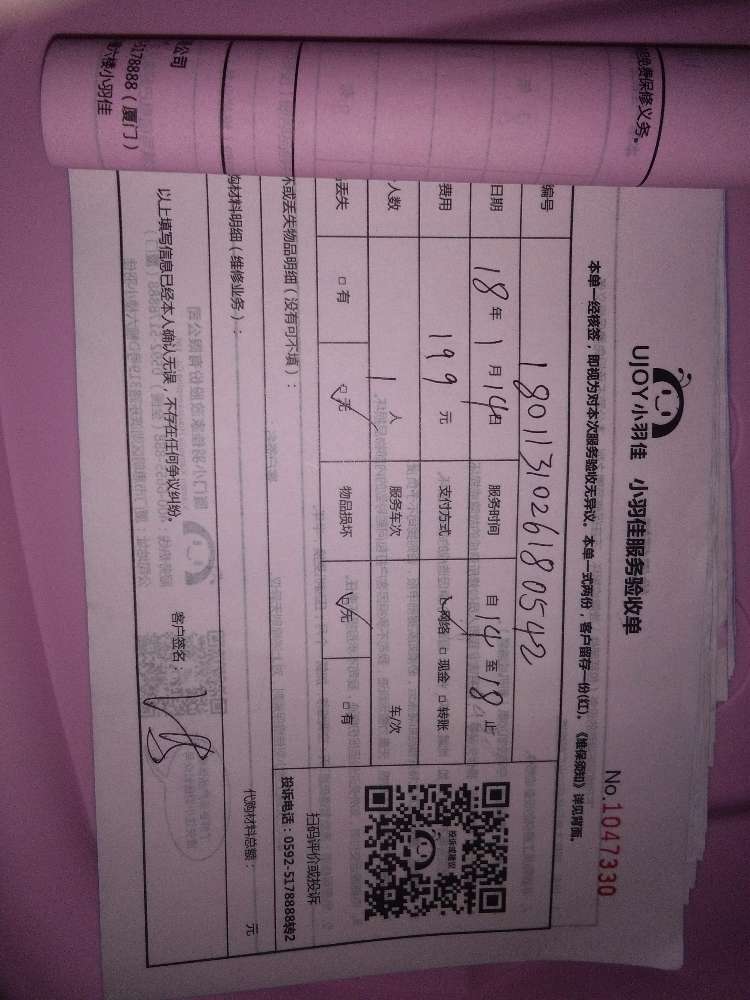 UJOY小羽佳 小羽佳服务验收单
No.1047330
本单一经核签，即视为对本次服务验收无异议。本单一式两份，客户留存一份(红)。《维保须知》详见背面。
编号 1801131026180542
日期 18年1月14日 服务时间 自14至18止
费用 199元 支付方式 网络 现金 转账
人数 1人 服务车次 车/次
丢失 有 无 物品损坏 无 有
投诉或建议
扫码评价或投诉
投诉电话：0592-5178888转2
坏或丢失物品明细（没有可不填）：
购材料明细（维修业务）： 代购材料总额： 元
以上填写信息已经本人确认无误，不存在任何争议纠纷。 客户签名：
免费保修义务。
公司
5178888（厦门）
六楼小羽佳